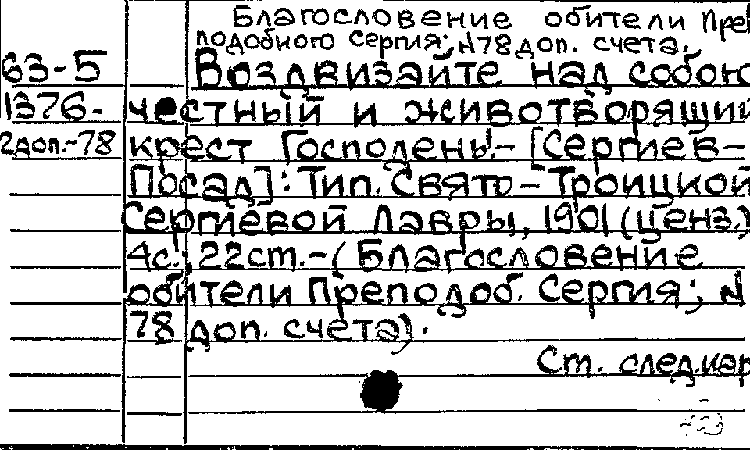 Благословение обители Преп
подобного Сергия; N78 доп. счета.
63-5 Воздвизайте над собою
1376- честный и животворящий
2доп.-78 крест Господень.- [Сергиев-
Посад]: Тип. Свято-Троицкой
Сергиевой Лавры, 1901 (ценз.)
4с., 22ст.-(Благословение
обители Преподоб. Сергия; N
78 доп. счета).
Ст. след.кар